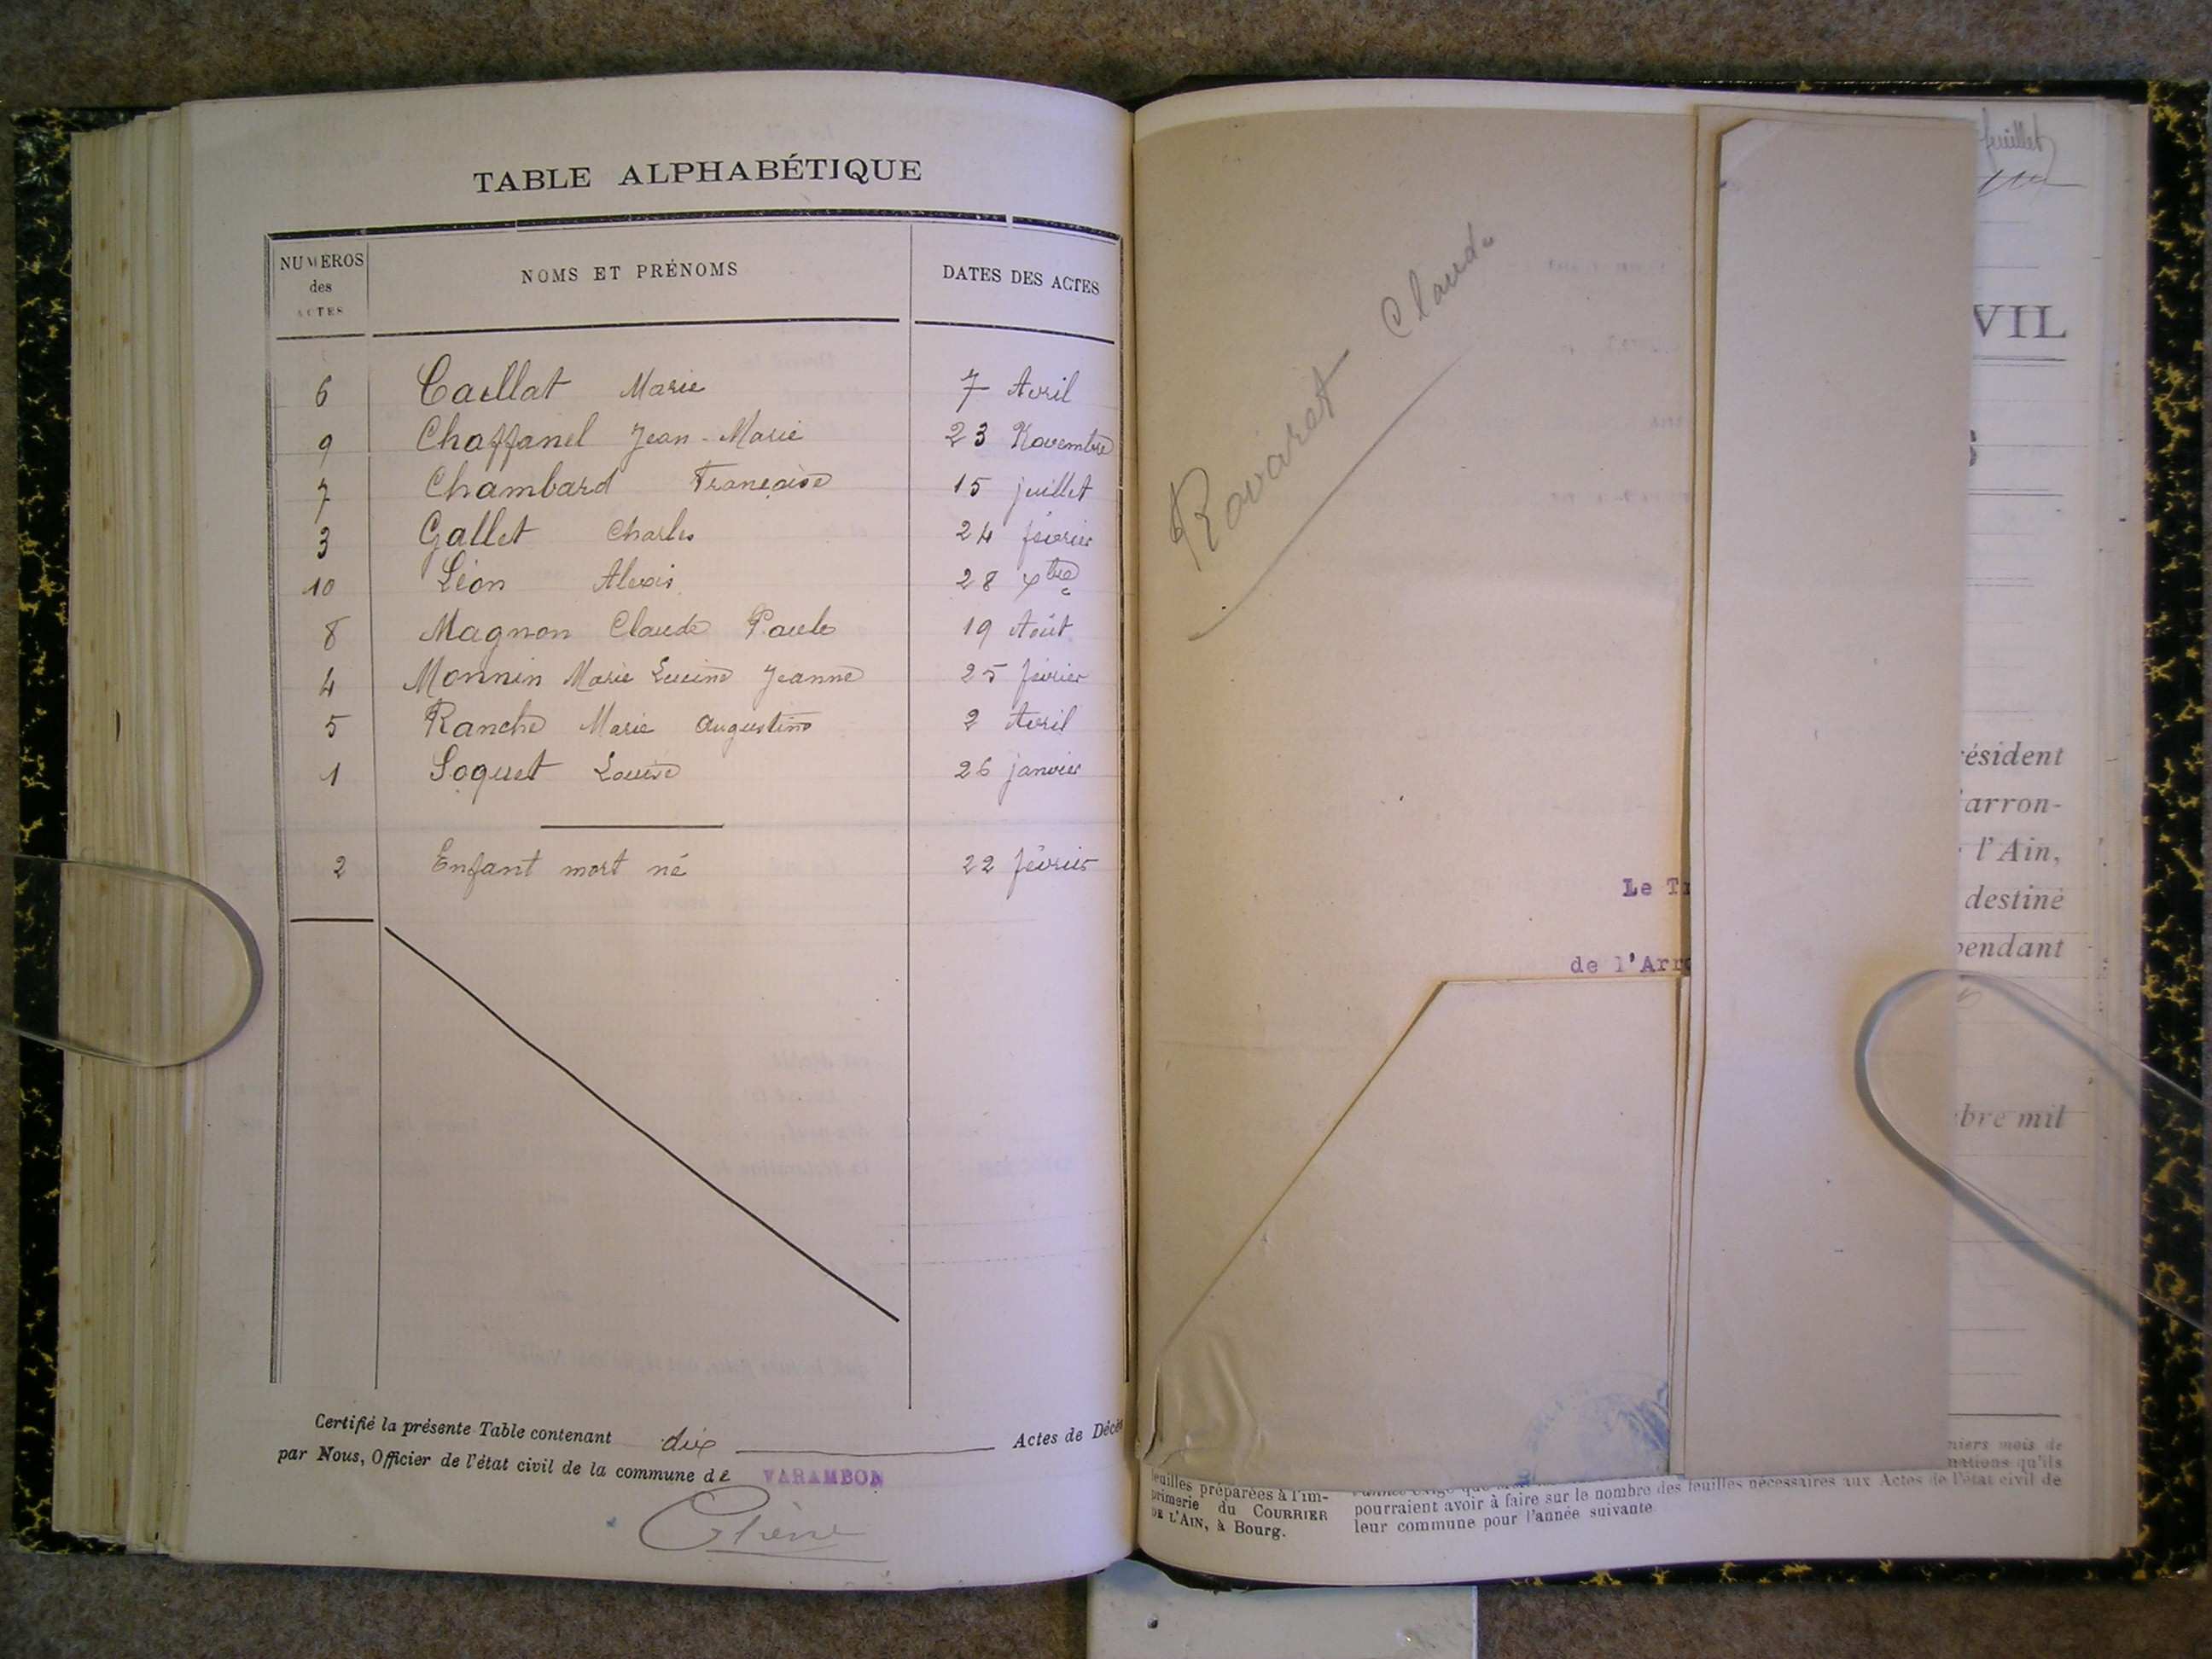 TABLE ALPHABÉTIQUE
NUMEROS des ACTES NOMS ET PRÉNOMS DATES DES ACTES
6 Caillat Marie 7 Avril
9 Chaffanel Jean-Marie 23 Novembre
7 Chambard Françoise 15 juillet
3 Gallet Charles 24 février
10 Léon Alexis 28 Xbre
8 Magnon Claude Paule 19 Août
4 Monnin Marie Lucine Jeanne 25 février
5 Ranche Marie Augustine 2 Avril
1 Soquet Louise 26 janvier
2 Enfant mort né 22 février
Certifié la présente Table contenant dix Actes de Décès
par Nous, Officier de l'état civil de la commune de VARAMBON
Ravaret Claude
Le Tr
de l'Arro
feuillet
VIL
résident
arron-
l'Ain,
destiné
pendant
bre mil
niers mois de
nations qu'ils
feuilles préparées à l'im-
primerie du COURRIER
DE L'AIN, à Bourg.
pourraient avoir à faire sur le nombre des feuilles nécessaires aux Actes de l'état civil de
leur commune pour l'année suivante